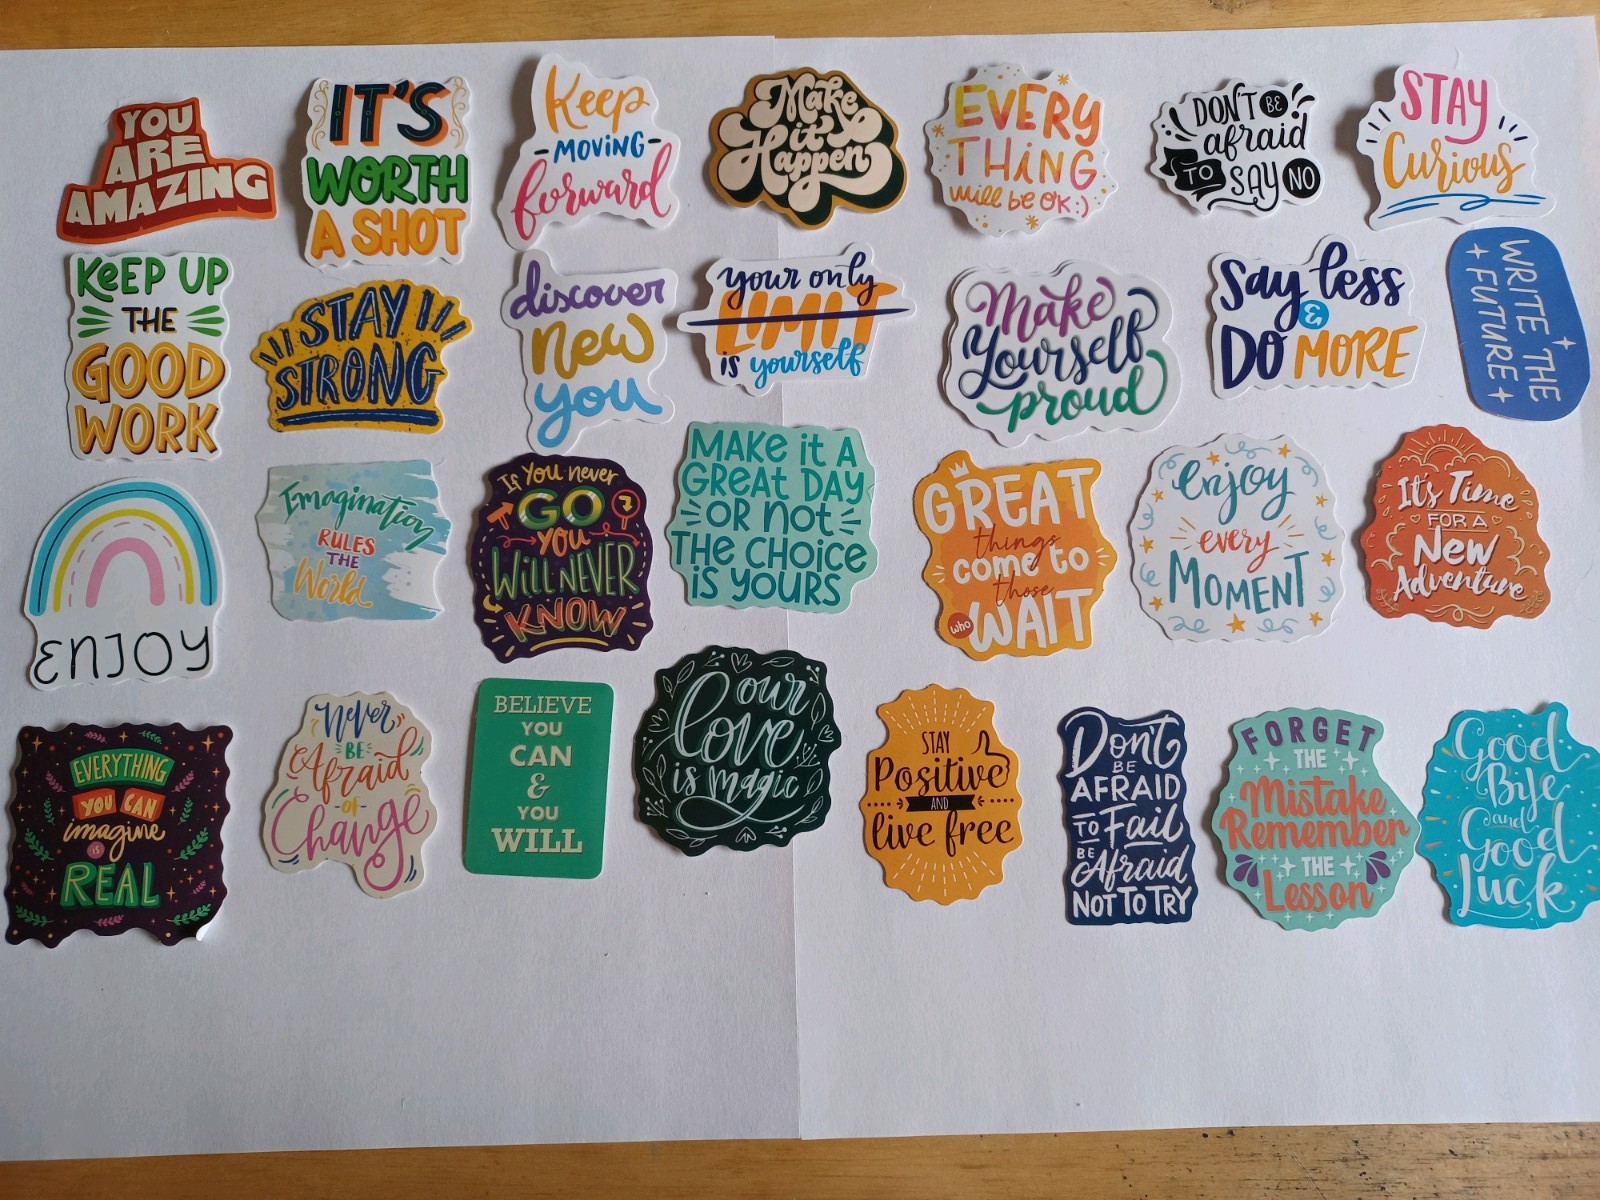 YOU
ARE
AMAZING
IT'S
WORTH
A SHOT
Keep
MOVING
forward
Make
it
Happen
EVERY
THING
will be OK :)
DON'T BE
afraid
TO SAY NO
STAY
Curious
KEEP UP
THE
GOOD
WORK
STAY
STRONG
discover
new
you
your only
LIMIT
is yourself
Make
Yourself
proud
Say less
&
DO MORE
WRITE THE
FUTURE
ENJOY
Imagination
RULES
THE
World
If You never
GO
you
Will NEVER
KNOW
MAKE it A
GREAT DAY
OR NOT
THE CHOICE
iS YOURS
GREAT
things
come to
those
who WAIT
enjoy
every
MOMENT
It's Time
FOR A
New
Adventure
EVERYTHING
YOU CAN
imagine
IS
REAL
Never
BE
Afraid
OF
Change
BELIEVE
YOU
CAN
&
YOU
WILL
our
love
is magic
STAY
Positive
AND
live free
Don't
BE
AFRAID
TO Fail
BE Afraid
NOT TO TRY
FORGET
THE
Mistake
Remember
THE
Lesson
Good
Bye
and
Good
Luck